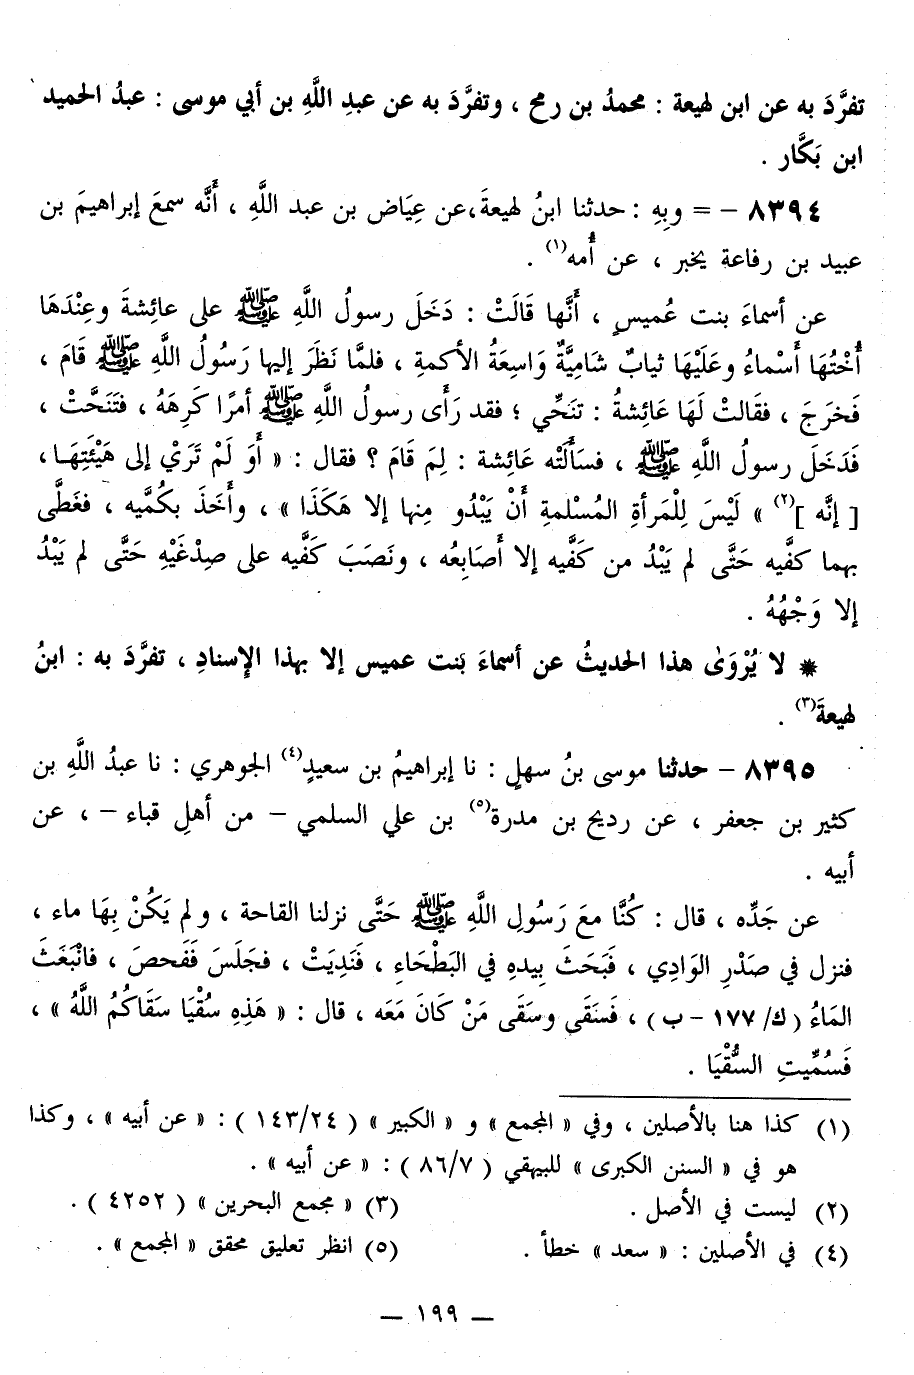 تفرَّدَ به عن ابن لهيعة : محمدُ بن رمح ، وتفرَّدَ به عن عبدِ اللَّهِ بن أبي موسى : عبدُ الحميد
ابن بَكَّار .
٨٣٩٤ – = وبِهِ : حدثنا ابنُ لهيعةَ، عن عِيَاض بن عبد اللَّهِ ، أنَّه سمعَ إبراهيمَ بن
عبيد بن رفاعة يخبر ، عن أُمه(١) .
عن أسماءَ بنت عُميسٍ ، أنَّها قَالَتْ : دَخَلَ رسولُ اللَّهِ ﷺ على عائِشةَ وعِنْدَهَا
أُخْتُهَا أَسْماءُ وعَلَيْهَا ثيابٌ شَامِيَّةٌ وَاسِعَةُ الأكمةِ ، فلمَّا نَظَرَ إليها رَسُولُ اللَّهِ ﷺ قَامَ ،
فَخرَجَ ، فقَالتْ لَهَا عَائِشةُ : تنَحِّي ؛ فقد رَأَى رسولُ اللَّهِ ﷺ أمرًا كَرِهَهُ ، فتَنَحَّتْ ،
فَدَخَلَ رسولُ اللَّهِ ﷺ ، فسأَلَتْه عَائِشة : لِمَ قَامَ ؟ فقال : « أَوَ لَمْ تَرَيْ إلى هَيْئَتِهَا ،
[ إنَّه ](٢) » لَيْسَ لِلْمَرأةِ المُسْلمةِ أَنْ يَبْدُو مِنها إلا هَكَذَا » ، وأَخَذَ بكُمَّيه ، فغَطَّى
بهما كفَّيه حَتَّى لم يَبْدُ من كَفَّيه إلا أَصَابِعُه ، ونَصَبَ كَفَّيه على صِدْغَيْهِ حَتَّى لم يَبْدُ
إلا وَجْهُهُ .
* لا يُرْوَىٰ هذا الحديثُ عن أسماءَ بَنت عميس إلا بهذا الإِسنادِ ، تفرَّدَ به : ابنُ
لهيعةَ(٣) .
٨٣٩٥ – حدثنا موسى بنُ سهلٍ : نا إبراهيمُ بن سعيدٍ(٤) الجوهري : نا عبدُ اللَّهِ بن
كثير بن جعفر ، عن رديح بن مدرة(٥) بن علي السلمي – من أهلِ قباء – ، عن
أبيه .
عن جَدِّه ، قال : كُنَّا معَ رَسُولِ اللَّهِ ﷺ حَتَّى نزلنا القاحة ، ولم يَكُنْ بِهَا ماء ،
فنزل في صَدْرِ الوَادِي ، فَبَحَثَ بِيدهِ في البَطْحَاءِ ، فَنَدِيَتْ ، فجَلَسَ فَفَحصَ ، فانْبَغَثَ
المَاءُ ( ك/ ١٧٧ – ب ) ، فَسَقَى وسَقَى مَنْ كَانَ مَعَه ، قال : « هَذِهِ سُقْيَا سَقَاكُمُ اللَّهُ » ،
فَسُمِّيتِ السُّقْيَا .
(١) كذا هنا بالأصلين ، وفي « المجمع » و « الكبير » ( ١٤٣/٢٤ ) : « عن أبيه » ، وكذا
هو في « السنن الكبرى » للبيهقي ( ٨٦/٧ ) : « عن أبيه » .
(٢) ليست في الأصل . (٣) « مجمع البحرين » ( ٤٢٥٢ ) .
(٤) في الأصلين : « سعد » خطأ . (٥) انظر تعليق محقق « المجمع » .
– ١٩٩ –